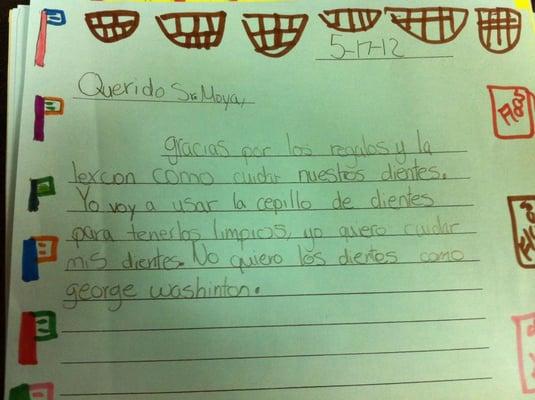 5-17-12
Querido Sr. Moya,
gracias por los regalos y la
lexcon como cuidar nuestros dientes.
Yo voy a usar la cepillo de dientes
para tenerlos limpios, yo quero cuidar
mis dientes. No quiero los dientes como
george washinton.